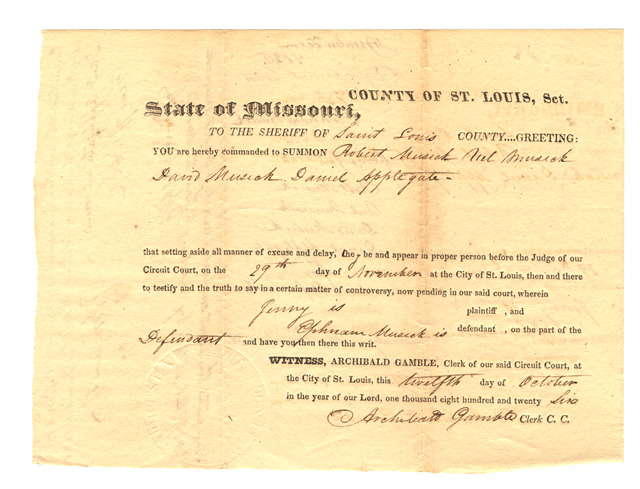 COUNTY OF ST. LOUIS, Sct.
State of Missouri,
TO THE SHERIFF OF Saint Louis COUNTY....GREETING:
YOU are hereby commanded to SUMMON Robert Musick Uel Musick
David Musick Daniel Applegate -
that setting aside all manner of excuse and delay, they be and appear in proper person before the Judge of our
Circuit Court, on the 29th day of November at the City of St. Louis, then and there
to testify and the truth to say in a certain matter of controversy, now pending in our said court, wherein
Jenny is plaintiff , and
Ephraim Musick is defendant , on the part of the
Defendant and have you then there this writ.
WITNESS, ARCHIBALD GAMBLE, Clerk of our said Circuit Court, at
the City of St. Louis, this twelfth day of October
in the year of our Lord, one thousand eight hundred and twenty Six
Archibald Gamble Clerk C. C.